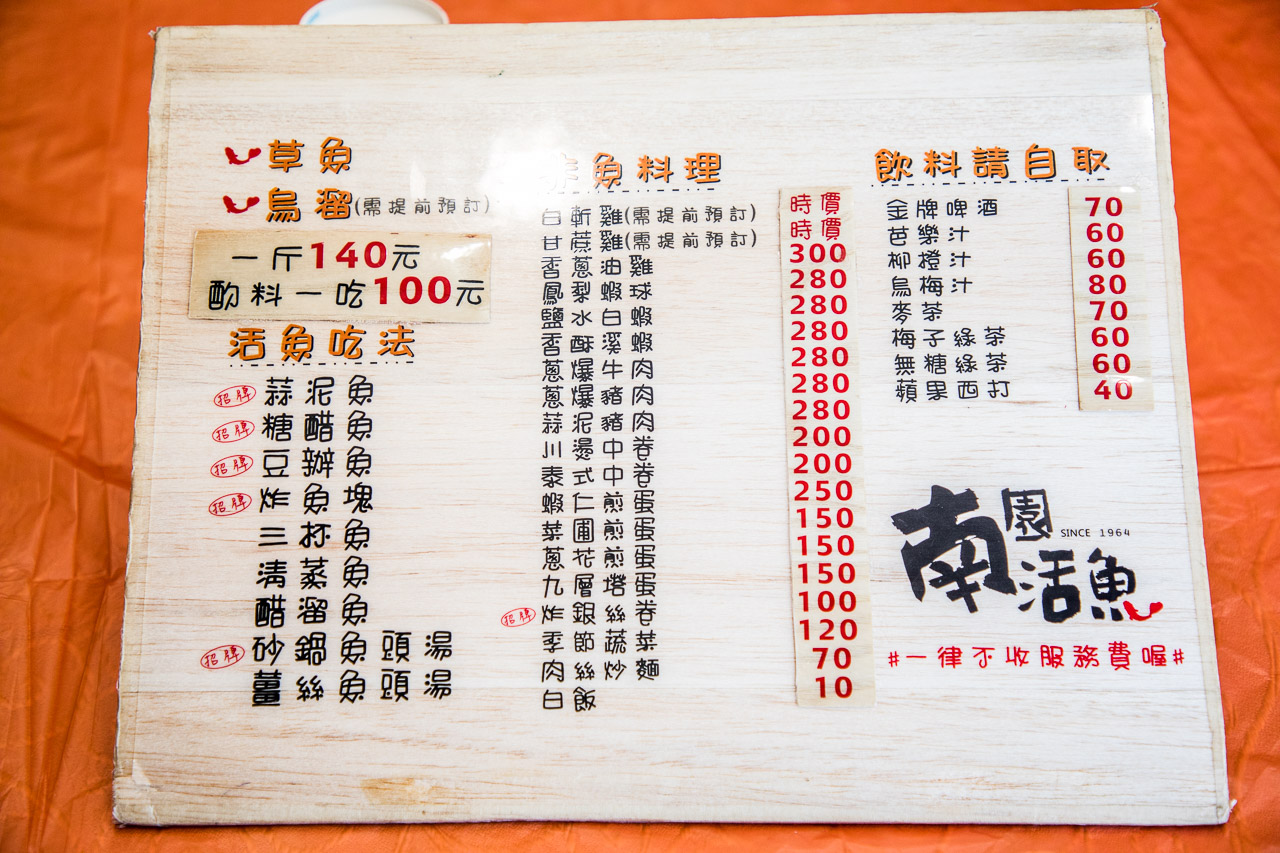 草魚
烏溜(需提前預訂)
一斤140元
酌料一吃100元
活魚吃法
招牌 蒜泥魚
招牌 糖醋魚
招牌 豆瓣魚
招牌 炸魚塊
三杯魚
清蒸魚
醋溜魚
招牌 砂鍋魚頭湯
薑絲魚頭湯
魚料理
白斬雞(需提前預訂) 時價
甘蔗雞(需提前預訂) 時價
香蔥油雞 300
鳳梨蝦球 280
鹽水白蝦 280
香酥溪蝦 280
蔥爆牛肉 280
蔥爆豬肉 280
蒜泥豬肉 280
川燙中卷 200
泰式中卷 200
蝦仁煎蛋 250
菜圃煎蛋 150
蔥花煎蛋 150
九層塔蛋 150
招牌 炸銀絲卷 100
季節蔬菜 120
肉絲炒麵 70
白飯 10
飲料請自取
金牌啤酒 70
芭樂汁 60
柳橙汁 60
烏梅汁 80
麥茶 70
梅子綠茶 60
無糖綠茶 60
蘋果西打 40
南園活魚
SINCE 1964
#一律不收服務費喔#